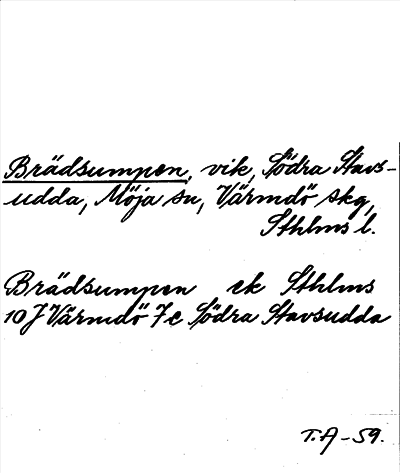 Brädsumpen, vik, Södra Stavs-
udda, Möja sn, Värmdö skg,
Sthlms l.
Brädsumpen ek Sthlms
10J Värmdö 7c Södra Stavsudda
T.A -59.